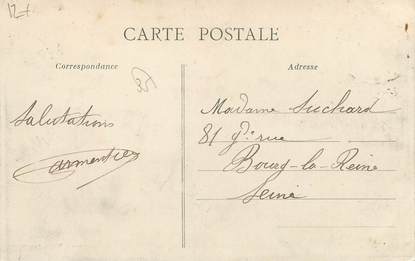 CARTE POSTALE
Correspondance
Adresse
35
Salutations
Madame Suchard
81 Gde rue
Bourg-la-Reine
Seine